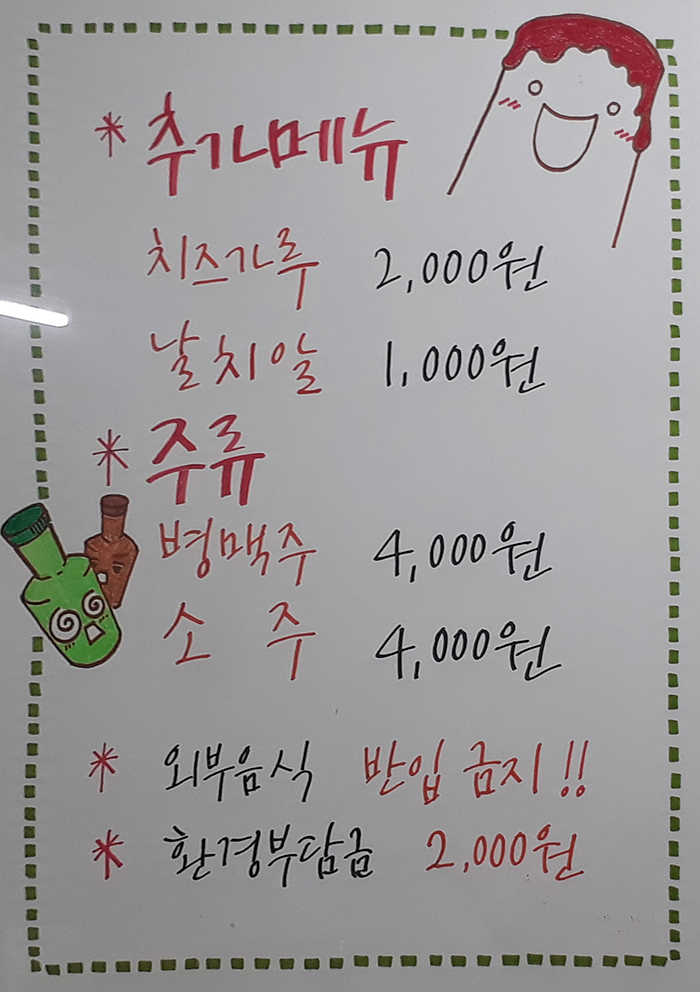 * 추가메뉴
치즈가루 2,000원
날치알 1,000원
* 주류
병맥주 4,000원
소 주 4,000원
* 외부음식 반입 금지!!
* 환경부담금 2,000원